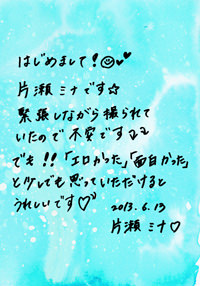 はじめまして!☺♥♥
片瀬ミナです☆
緊張しながら撮られて
いたので不安です
でも!!「エロかった」「面白かった」
と少しでも思っていただけると
うれしいです♡
2013.6.13
片瀬ミナ♡